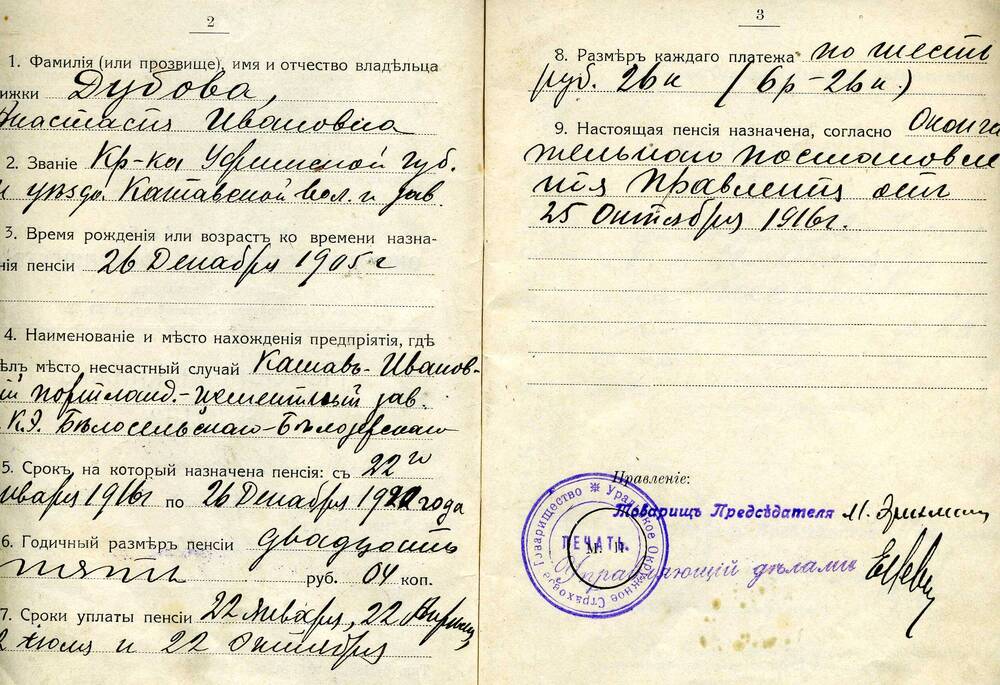 2
1. Фамилія (или прозвище), имя и отчество владѣльца
ижки Дубова,
Анастасія Ивановна
2. Званіе Кр-ка Уфимской губ.
и уѣзда. Катавской вол. и зав.
3. Время рожденія или возрастъ ко времени назна-
нія пенсіи 26 Декабря 1905 г
4. Наименованіе и мѣсто нахожденія предпріятія, гдѣ
ѣлъ мѣсто несчастный случай Катавъ-Иванов-
ій портланд.-цементный зав.
К.Э. Бѣлосельскаго-Бѣлозерскаго
5. Срокъ, на который назначена пенсія: съ 22го
нваря 1916г по 26 Декабря 1920 года
6. Годичный размѣръ пенсіи двадцать
пять руб. 04 коп.
7. Сроки уплаты пенсіи 22 Января, 22 Апрѣля,
2 Іюля и 22 Октября
3
8. Размѣръ каждаго платежа по шесть
руб. 26 к (6р-26к.)
9. Настоящая пенсія назначена, согласно Оконча
тельнаго постановле
нія Правленія отъ
25 Октября 1916г.
Правленіе:
Товарищъ Предсѣдателя
Уральское Окружное Страховое Товарищество
ПЕЧАТЬ.
М. П.
Управляющій дѣлами